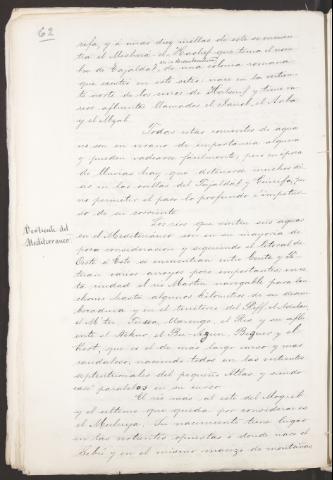 62
y á unas diez millas de este se encuen
tra el Meshera el Hachef que toma el nom
bre de Tajaldat, de una colonia romana
que existió en este sitio: nace en la vertien
te norte de los
afluentes llamados el
y el
Todas estas corrientes de agua
no son en verano de importancia alguna
y pueden vadearse facilmente; pero en época
de lluvias hay que detenerse muchos di
as en las orillas del Tajaldat y
no permitir el paso lo profundo e impetuo
so de su corriente.
Vertiente del
Mediterraneo.
Los rios que vierten sus aguas
en el Mediterraneo son en su mayoria de
poca consideración y siguiendo el litoral de
Oeste á Este se encuentran entre Ceuta y Te
tuan varios arroyos poco importantes; en es
ta ciudad el rio Martin navegable para lan
chones hasta algunos kilometros de su desem
bocadura y en el territorio del Riff, el
el M'ter, el Rio y su aflu
ente el y el
Kert, que es el de mas largo curso y mas
caudaloso, naciendo todos en las vertientes
septentrionales del pequeño Atlas y siendo
casi paralelos en su curso.
El rio mas al este del Mogreb
y el ultimo que queda por considerar es
el Muluya; Su nacimiento tiene lugar
en las vertientes opuestas á donde nace el
Sebú y en el mismo macizo de montañas